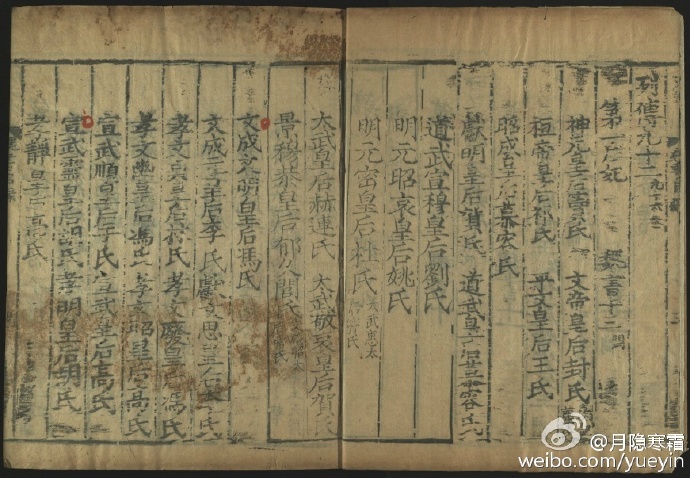 列傳九十二
第一后妃 魏書十三
神元皇后竇氏 文帝皇后封氏
桓帝皇后祁氏 平文皇后王氏
昭成皇后慕容氏
獻明皇后賀氏 道武皇后慕容氏
道武宣穆皇后劉氏
明元昭哀皇后姚氏
明元密皇后杜氏
太武皇后赫連氏 太武敬哀皇后賀氏
景穆恭皇后郁久閭氏
文成文明皇后馮氏
文成元皇后李氏 獻文思皇后李氏
孝文貞皇后林氏 孝文廢皇后馮氏
孝文幽皇后馮氏 孝文昭皇后高氏
宣武順皇后于氏 宣武皇后高氏
宣武靈皇后胡氏 孝明皇后胡氏
孝靜皇后高氏
@月隐寒霜
weibo.com/yueyin